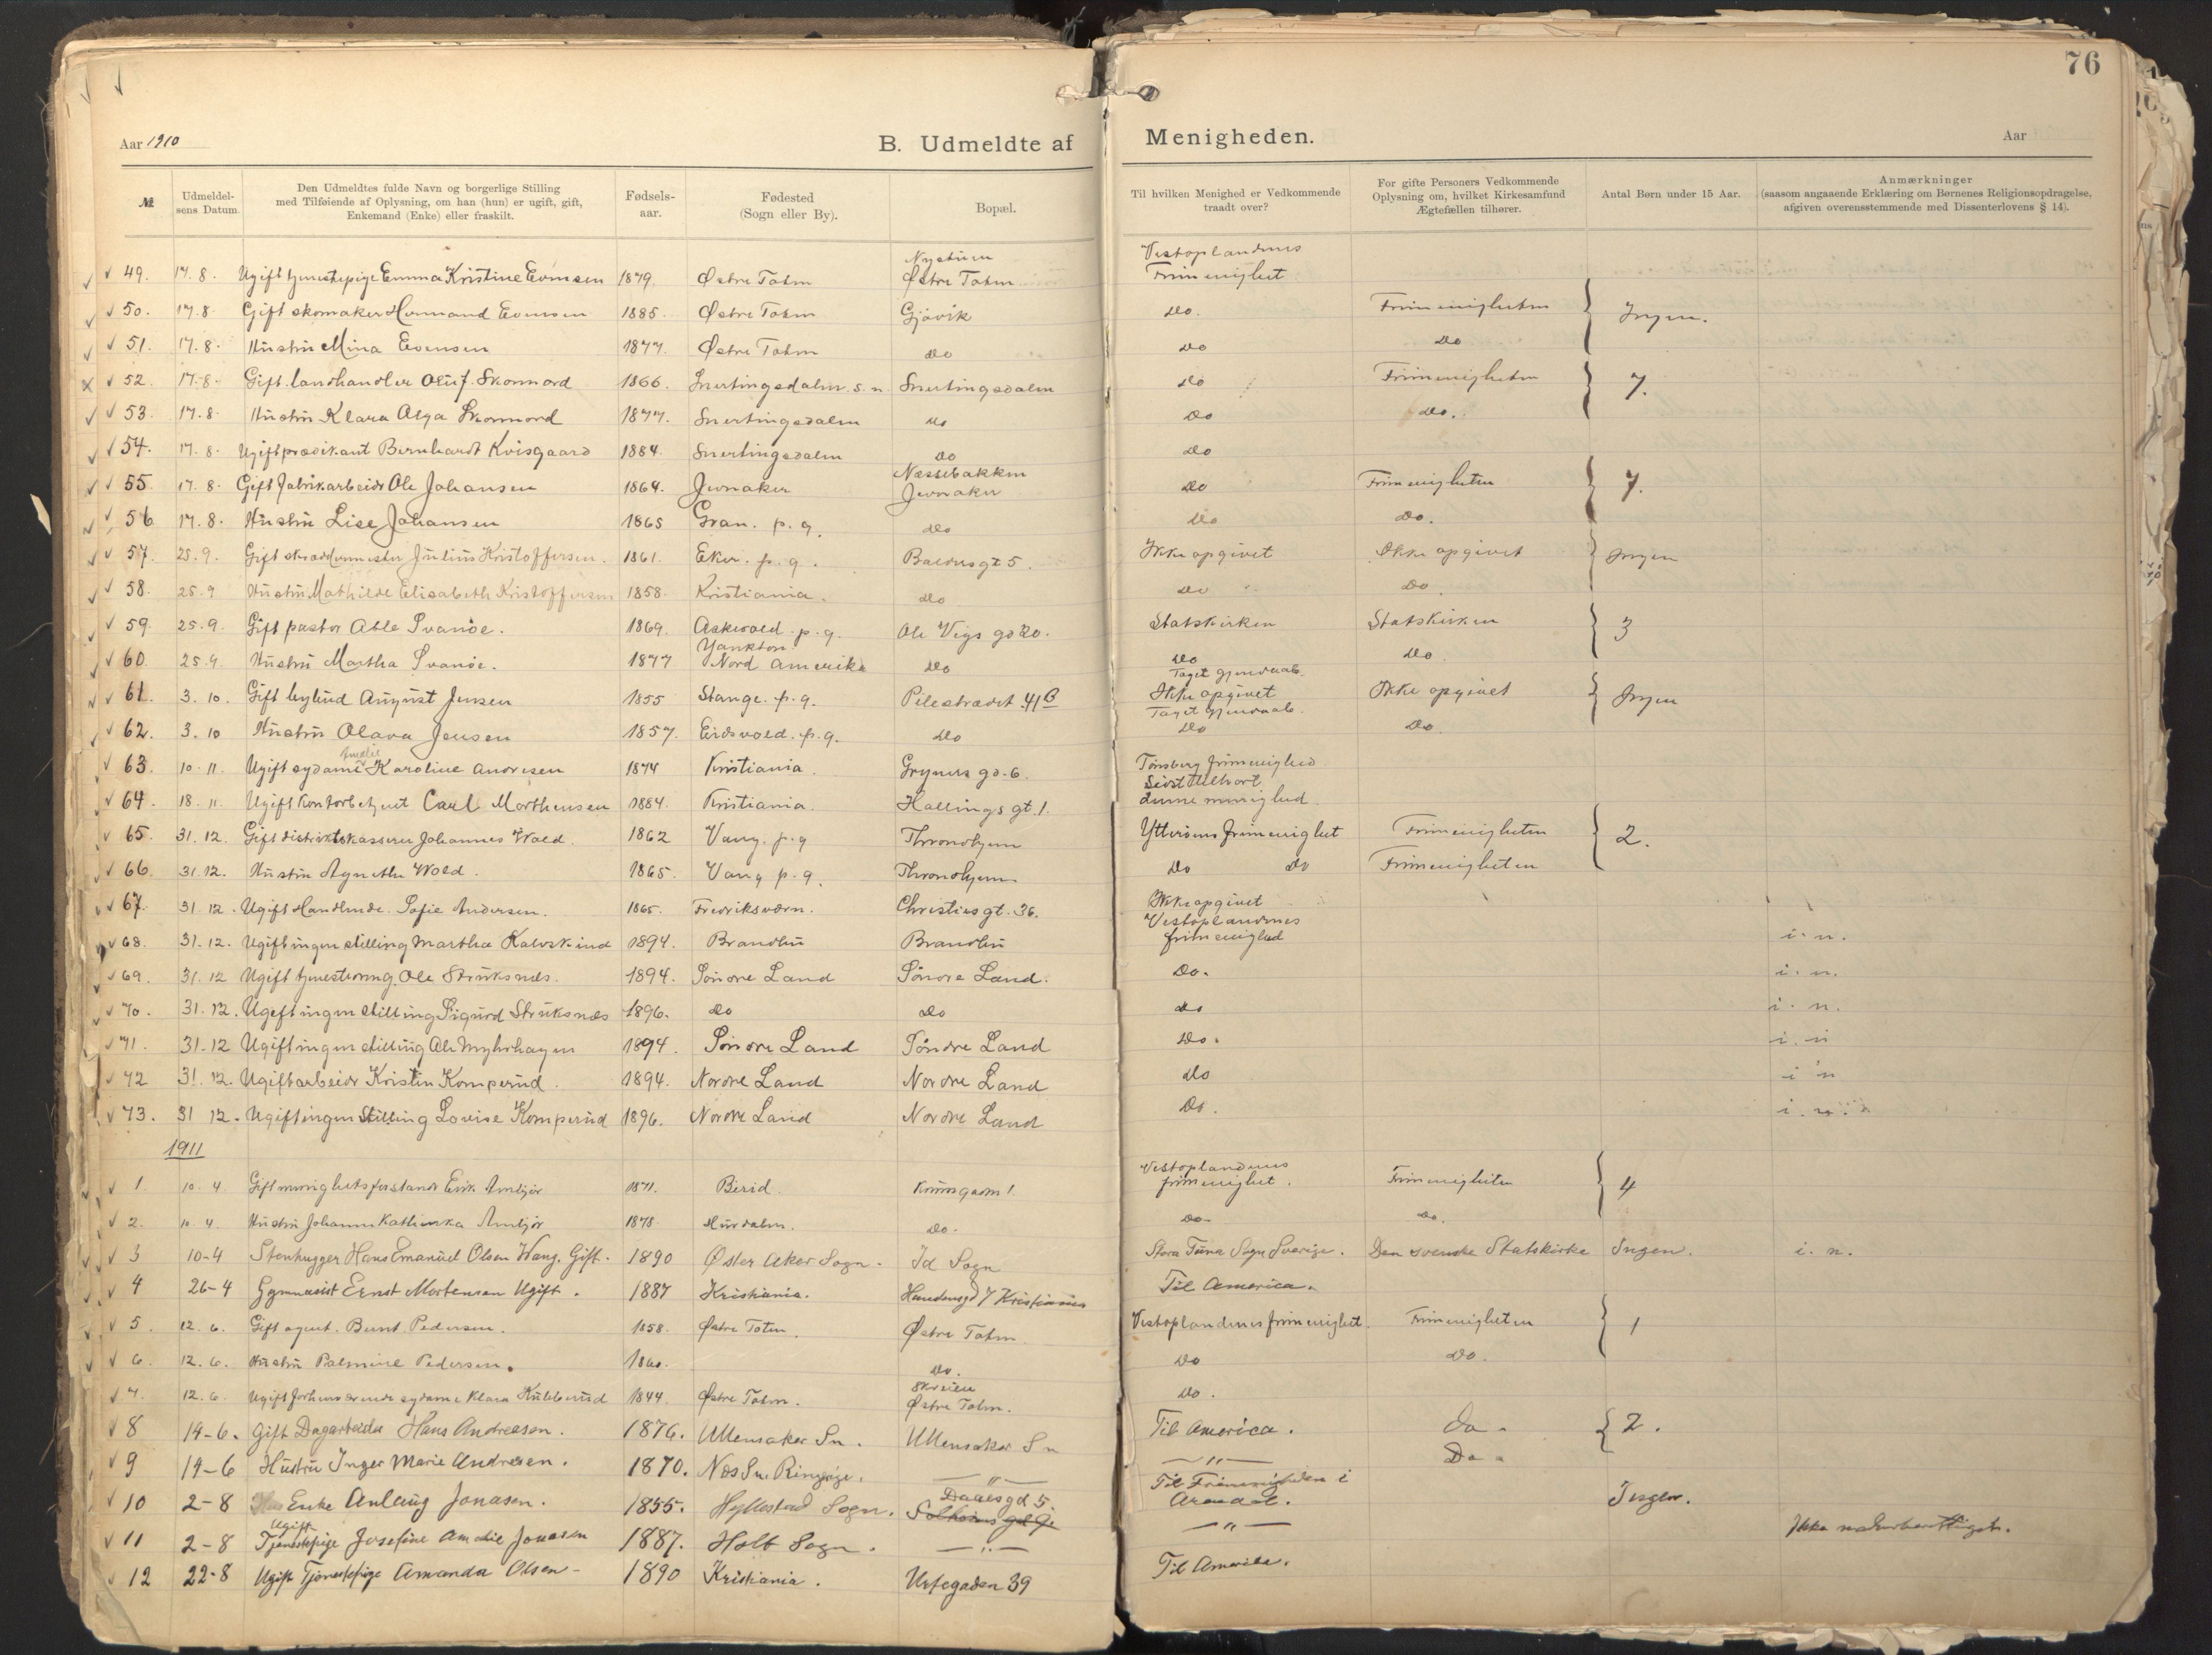 76
Aar 1910
B. Udmeldte af Menigheden.
Aar
№
Udmeldelsens Datum.
Den Udmeldtes fulde Navn og borgerlige Stilling med Tilføiende af Oplysning, om han (hun) er ugift, gift, Enkemand (Enke) eller fraskilt.
Fødselsaar.
Fødested (Sogn eller By).
Bopæl.
Til hvilken Menighed er Vedkommende traadt over?
For gifte Personers Vedkommende Oplysning om, hvilket Kirkesamfund Ægtefællen tilhører.
Antal Børn under 15 Aar.
Anmærkninger (saasom angaaende Erklæring om Børnenes Religionsopdragelse, afgiven overensstemmende med Dissenterlovens § 14).
49. 17.8. Ugift tjenestepige Emma Kristine Evensen 1879. Østre Toten Nystuen Østre Toten Vestoplandenes Frimenighet
50. 17.8. Gift skomaker Hermand Evensen 1885. Østre Toten Gjøvik do. Frimenigheten Ingen.
51. 17.8. Hustru Mina Evensen 1877. Østre Toten do do do
52. 17.8. Gift landhandler Oluf Skonnord 1866. Snertingsdalen s.n. Snertingsdalen do Frimenigheten 7.
53. 17.8. Hustru Klara Alga Skonnord 1877. Snertingsdalen do do do.
54. 17.8. Ugift prædikant Bernhardt Kvisgaard 1884. Snertingsdalen do do
55. 17.8. Gift fabrikarbeider Ole Johansen 1864. Jevnaker Næssebakken Jevnaker do Frimenigheten 7.
56 17.8. Hustru Lise Johansen 1865 Gran. p.g. do do do.
57. 25.9. Gift skræddermester Julius Kristoffersen. 1861. Eker. p.g. Baldersgt 5. Ikke opgivet Ikke opgivet Ingen
58. 25.9 Hustru Mathilde Elisabeth Kristoffersen 1858. Kristiania. do do do
59. 25.9. Gift pastor Able Svanøe. 1869. Askevold p.g. Ole Vigs gd 20. Statskirken Statskirken 3
60. 25.9. Hustru Martha Svanøe. 1877 Yankton Nord Amerika do do do.
61. 3.10. Gift bybud August Jensen 1855 Stange. p.g. Pilestrædet 41 B Taget gjendaab. Ikke opgivet Ikke opgivet Ingen
62. 3.10 Hustru Olava Jensen 1857. Eidsvold. p.g. do Taget gjendaab. do do.
63. 10.11. Ugift sydame Amalie Karoline Andresen 1874 Kristiania. Gryners gd. 6. Tønsberg frimenighed.
64. 18.11. Ugift kontorbetjent Carl Morthensen 1884. Kristiania. Hallings gt. 1. Sidst tilhørt denne menighed.
65. 31.12. Gift distriktskasserer Johannes Wold. 1862 Vang. p.g Throndhjem Ytterøens frimenighet Frimenigheten 2.
66. 31.12. Hustru Agnethe Wold. 1865. Vang p.g. Throndhjem. do do Frimenigheten
67. 31.12. Ugift Handlende. Sofie Andersen. 1865. Fredriksværn. Christies gt. 36. Ikke opgivet
68. 31.12. Ugift ingen stilling Martha Kalvskind 1894. Brandbu Brandbu Vestoplandenes frimenighed i. n.
69. 31.12 Ugift tjenestedreng Ole Struksnæs. 1894. Søndre Land Søndre Land. do. i. n.
70. 31.12. Ugift ingen stilling Sigurd Struksnæs 1896. do do do i. n.
71. 31.12 Ugift ingen stilling Ole Myhrhagen 1894. Søndre Land Søndre Land do. i. n
72 31.12. Ugift arbeider Kristin Komperud. 1894. Nordre Land Nordre Land do i n
73. 31 12. Ugift ingen Stilling Lovise Komperud 1896. Nordre Land Nordre Land do. i. n.
1911
1 10.4. Gift menighetsforstander Erik Ambjør 1871. Birid. Vestoplandenes frimenighet. Frimenigheten 4
2. 10.4. Hustru Johanne Ambjør 1878. Hurdalen. do. do. do.
3 10-4 Stenhugger Hans Emanuel Olsen Wang. Gift. 1890 Øster Aker Sogn. Id Sogn Stora Tuna Sogn Sverige. Den svenske Statskirke Ingen. i. n.
4 26-4 Gymnasist Ernst Mortensen Ugift. 1887 Kristiania. Kristiania Til America.
5. 12.6. Gift agent. Bernt Pedersen. 1858. Østre Toten. Østre Toten Vestoplandenes frimenighet. Frimenigheten 1
6. 12.6. Hustru Palmine Pedersen. 1860. do. do do.
7. 12.6. Ugift forhenværende sydame Klara Kulblerud 1844. Østre Toten. Skreien Østre Toten. do.
8 19-6. Gift Dagarbeider Hans Andreasen. 1876. Ullensaker Sn. Ullensaker Sn Til America. Do. 2.
9 19-6 Hustru Inger Marie Andresen. 1870. Nes Sn. Ringsige. —"— —"— Do.
10 2-8 Enke Anlaug Jonasen. 1855. Hyllestad Sogn. Daaes gd 5. Solheims gd 9. Til Frimenigheden i Arendal. Ingen.
11 2-8 Ugift Tjenestepige Josefine Amalie Jonasen 1887. Holt Sogn. —"— —"— Ikke naturberettiget.
12 22-8 Ugift Tjenestepige Amanda Olsen 1890 Kristiania. Urtegaden 39 Til Amerika.